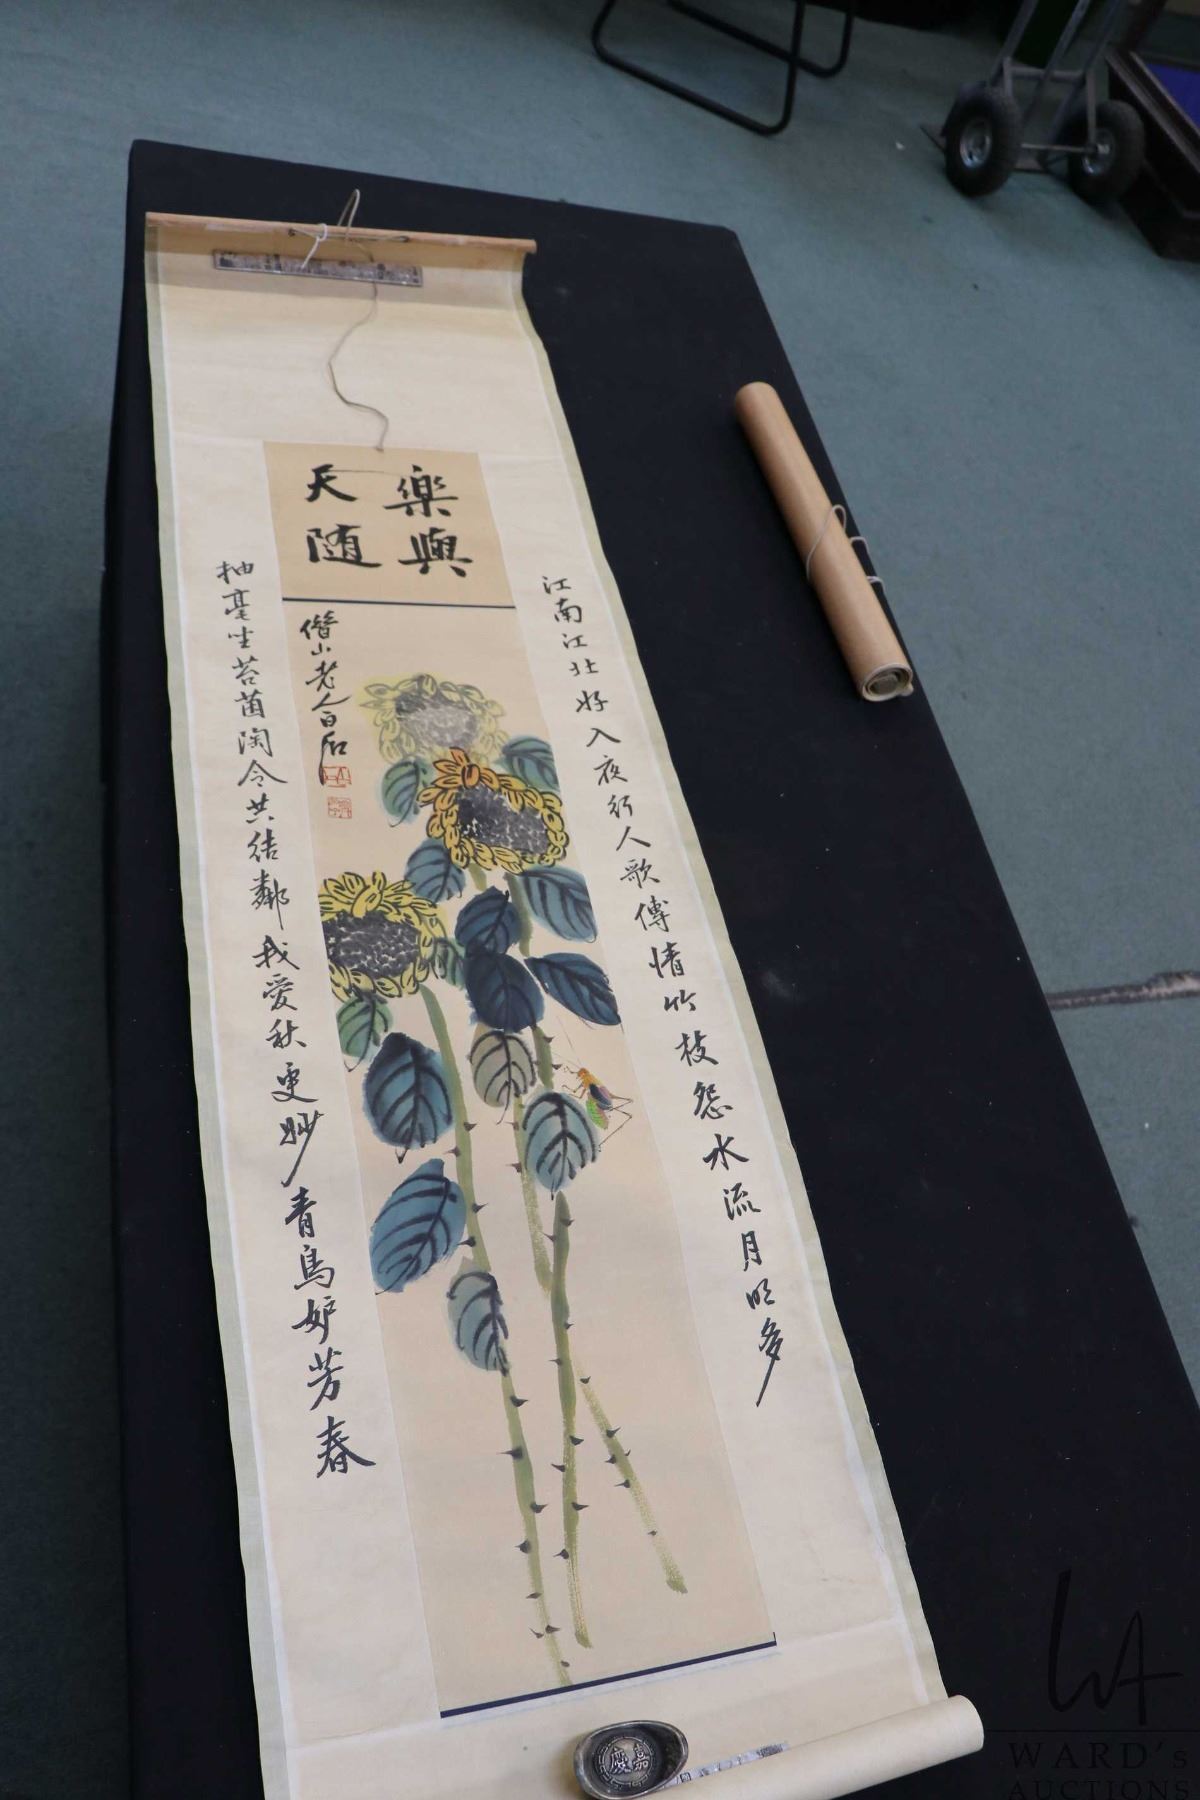 樂天
與隨
江南江北好入夜行人歌傳情竹枝怨水流月明多
借山老人白石
抽毫坐苔茵陶令共结鄰我爱秋更妙青鳥妒芳春
嘉慶
WA
WARD's
AUCTIONS